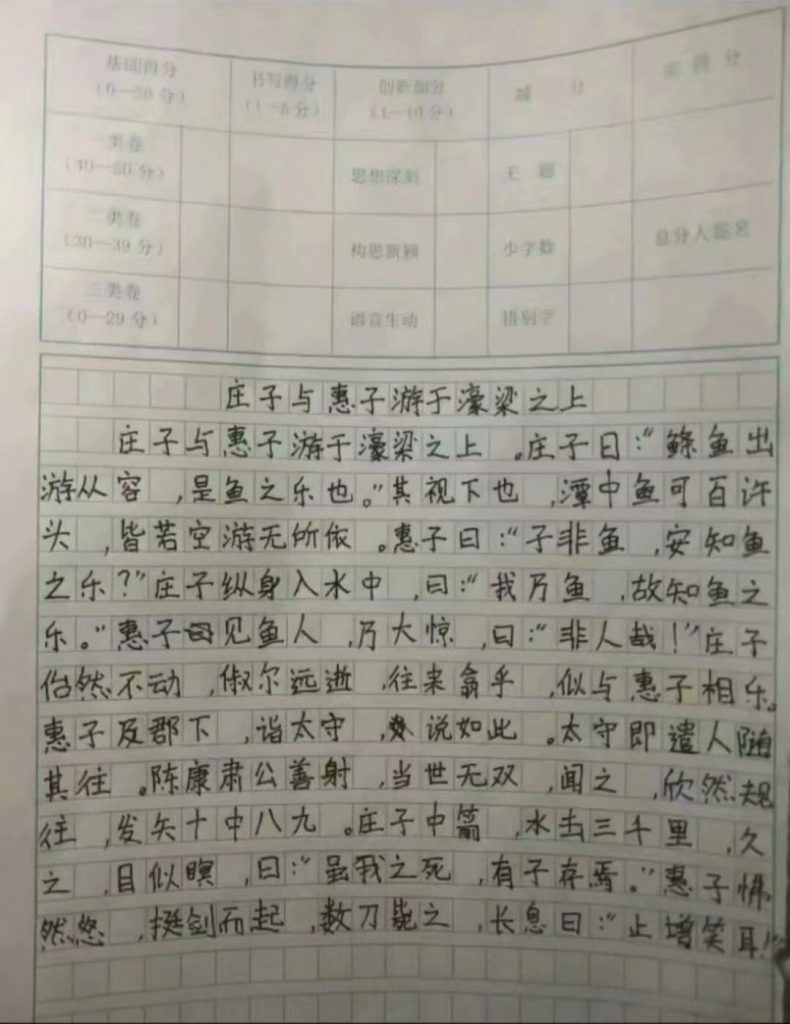 基础得分 书写得分 创新加分 减 分 实 得 分
(0—50分) (1—5分) (1—10分)
一类卷
(40—50分) 思想深刻 无 题
二类卷
(30—39分) 构思新颖 少字数 总分人签名
三类卷
(0—29分) 语言生动 错别字
庄子与惠子游于濠梁之上
庄子与惠子游于濠梁之上。庄子曰:“鲦鱼出
游从容,是鱼之乐也。”其视下也,潭中鱼可百许
头,皆若空游无所依。惠子曰:“子非鱼,安知鱼
之乐?”庄子纵身入水中,曰:“我乃鱼,故知鱼之
乐。”惠子见鱼人,乃大惊,曰:“非人哉!”庄子
佁然不动,俶尔远逝,往来翕乎,似与惠子相乐。
惠子及郡下,诣太守,说如此。太守即遣人随
其往。陈康肃公善射,当世无双,闻之,欣然规
往,发矢十中八九。庄子中箭,水击三千里,久
之,目似瞑,曰:“虽我之死,有子存焉。”惠子怫
然怒,挺剑而起,数刀毙之,长息曰:“止增笑耳!”